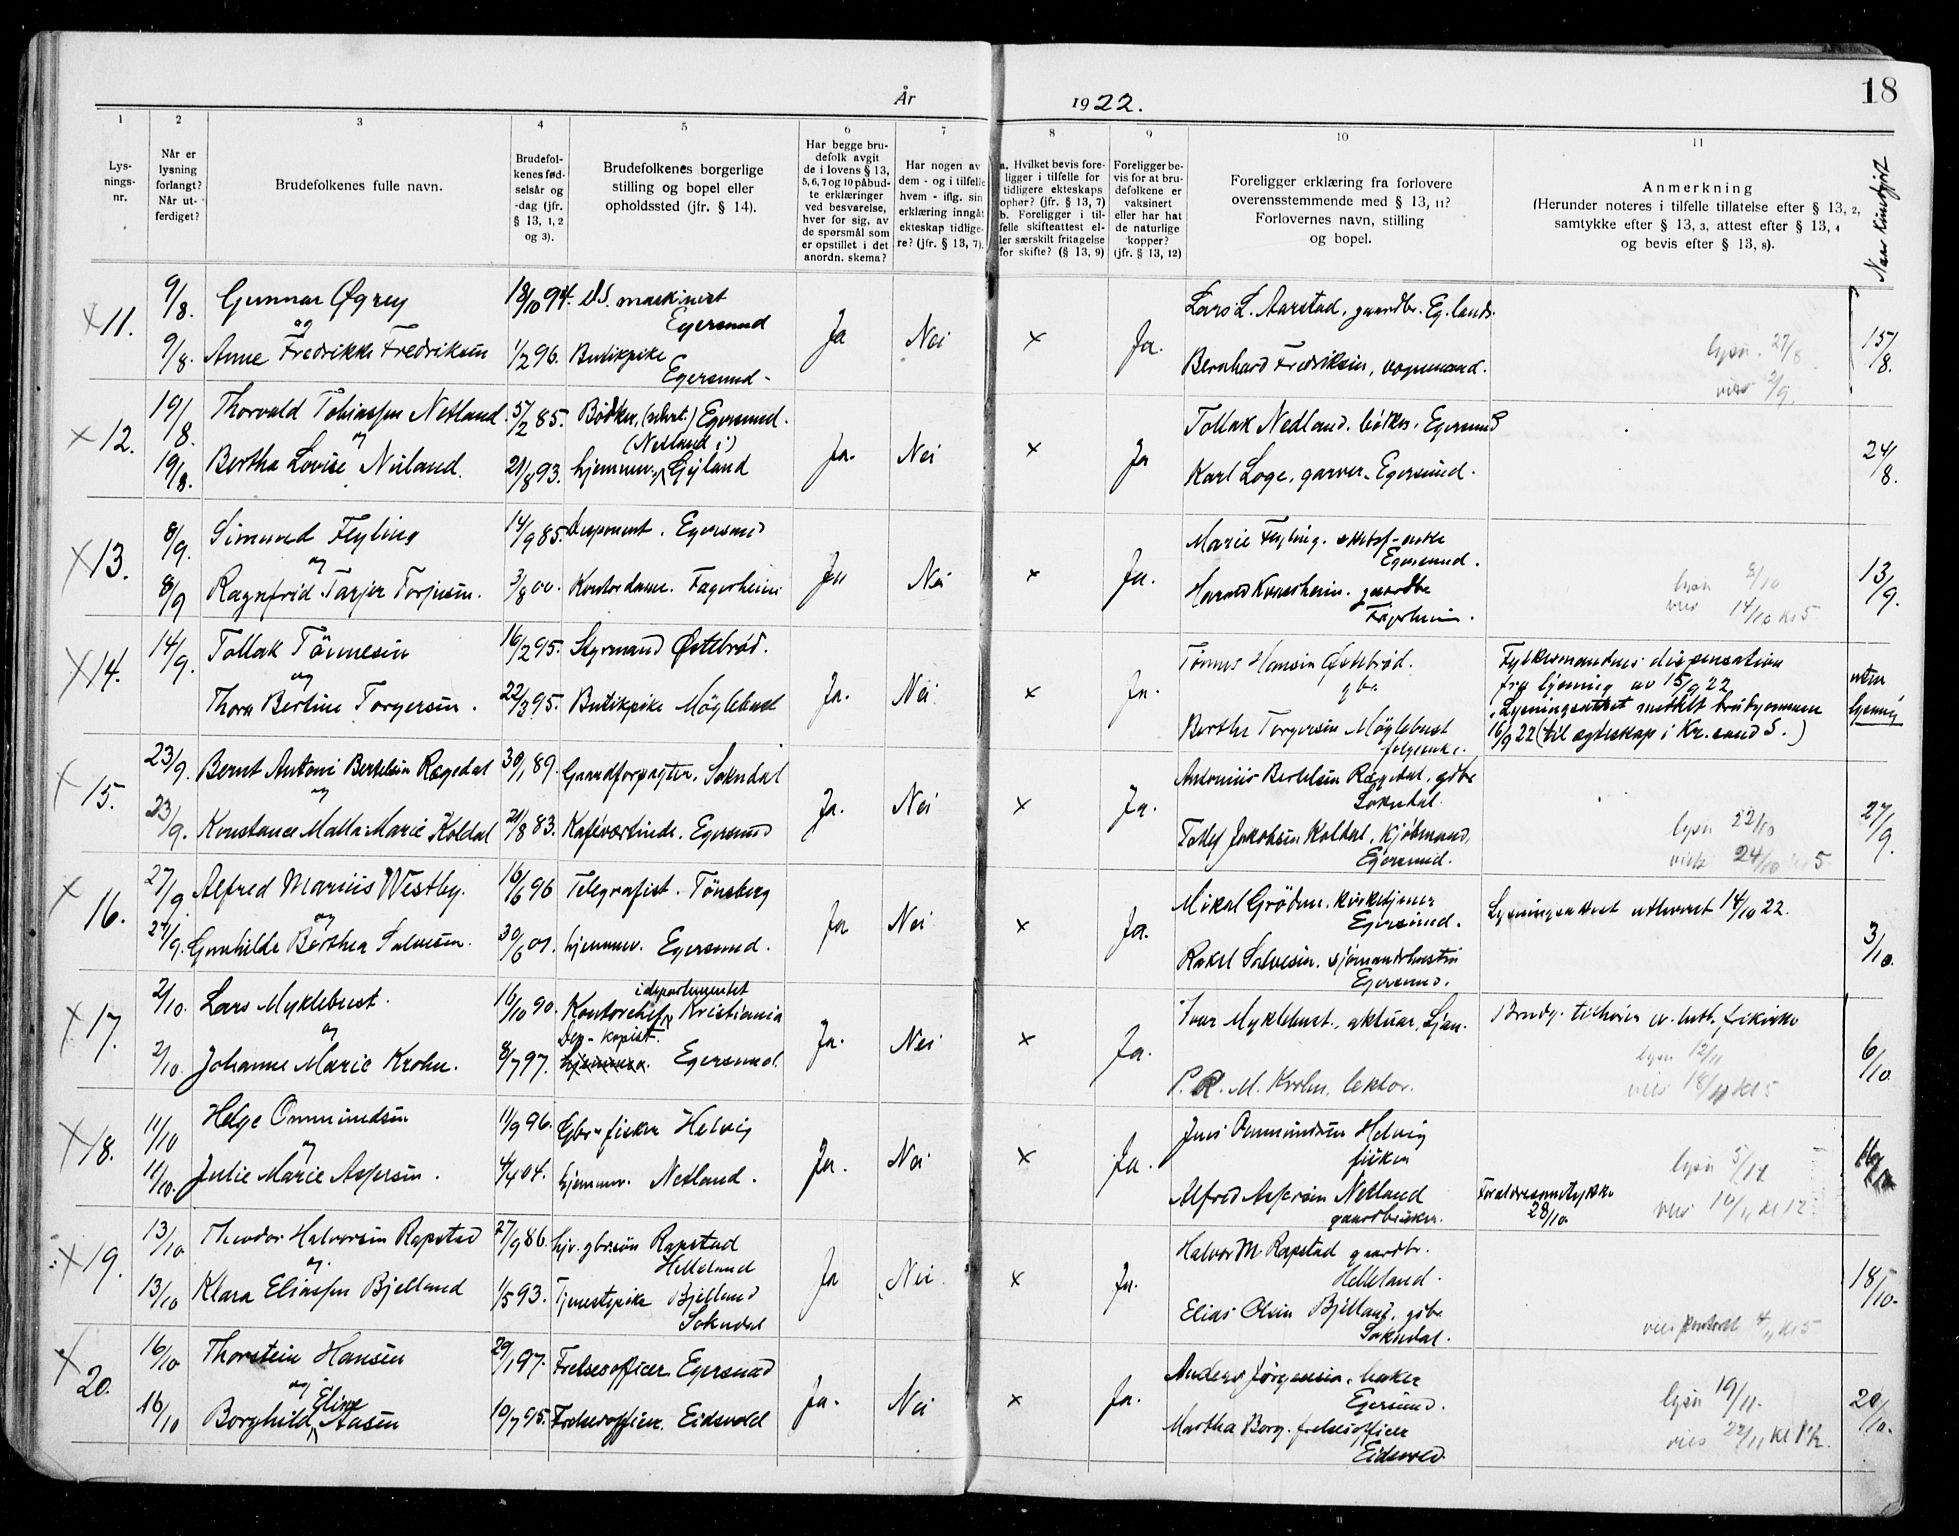 18
År 1922.
1 2 3 4 5 6 7 8 9 10 11
Lys-
nings-
nr.
Når er
lysning
forlangt?
Når ut-
ferdiget?
Brudefolkenes fulle navn.
Brudefol-
kenes fød-
selsår og
-dag (jfr.
§ 13, 1, 2
og 3).
Brudefolkenes borgerlige
stilling og bopel eller
opholdssted (jfr. § 14).
Har begge bru-
defolk avgit
de i lovens § 13,
5, 6, 7 og 10 påbud-
te erklæringer
ved besvarelse,
hver for sig, av
de spørsmål som
er opstillet i det
anordn. skema?
Har nogen av
dem - og i tilfelle
hvem - iflg. sin
erklæring inngåt
ekteskap tidlige-
re? (jfr. § 13, 7).
a. Hvilket bevis fore-
ligger i tilfelle for
tidligere ekteskaps
ophør? (jfr. § 13, 7)
b. Foreligger i til-
felle skifteattest el-
ler særskilt fritagelse
for skifte? (§ 13, 9)
Foreligger be-
vis for at bru-
defolkene er
vaksinert
eller har hat
de naturlige
kopper?
(jfr. § 13, 12)
Foreligger erklæring fra forlovere
overensstemmende med § 13, 11?
Forlovernes navn, stilling
og bopel.
Anmerkning
(Herunder noteres i tilfelle tillatelse efter § 13, 2,
samtykke efter § 13, 3, attest efter § 13, 4
og bevis efter § 13, 8).
Naar kundgjort
x 11. 9/8. Gunnar Øgrey 18/10 94. maskinist Egersund
og
9/8. Anne Fredrikke Fredriksen 1/2 96. Butikpike Egersund
Ja Nei x Ja.
Lars L. Aarstad, gaardbr. Eg.lands.
Bernhard Fredriksen, vognmand.
lysn. 27/8
vies 2/9.
15/8.
x 12. 19/8. Thorvald Tobiassen Netland. 5/2 85. Bødker, Egersund.
og (Netland i)
19/8. Bertha Lovise Nuland. 21/8 93. hjemmev. Gyland
Ja. Nei x Ja
Tollak Nedland, bødker, Egersund
Karl Loge, garver. Egersund.
24/8.
x 13. 8/9. Simund Flyling 14/9 85. Disponent. Egersund
og
8/9 Ragnfrid Tarjer Torjusen. 3/8 00. Kontordame. Fagerheim
Ja Nei x Ja.
Marie Flyling. enke
Egersund.
gaardbr
Fagerheim.
lysn 8/10
vies 14/10 kl 5
13/9.
x 14. 14/9. Tollak Tønnesen 16/2 95. Styrmand Østebrød.
og
Thora Bertine Torgersen. 22/3 95. Butikpike Møglebust
Ja. Nei x Ja.
Tønnes Hansen Østebrød.
gbr.
Berthe Torgersen Møglebust
Fylkesmandens dispensation
fra lysning av 15/9 22
Lysningsattest meddelt brudgommen
16/9 22 (til ægteskap i Kr.sand S.)
uten
lysning
x 15. 23/9. Bernt Antoni Bertelsen Rægedal 30/1 89. Gaardforpagter, Sokndal
og
23/9. Konstance Malla Marie Koldal 21/8 83. Kafévertinde. Egersund
Ja. Nei x Ja.
Antonius Bertelsen Rægedal, gdbr
Sokndal.
Tolley Jakobsen Koldal, kjøbmand,
Egersund.
lysn 22/10
vies 24/10 kl 5.
27/9.
x 16. 27/9 Alfred Marius Westby. 16/6 96 Telegrafist. Tønsberg
og
27/9. Gunhilde Berthea Salvesen. 30/6 01. hjemmev. Egersund.
Ja Nei x Ja.
Mikal Grødem. kirketjener
Egersund.
Rakel Salvesen, sjømandshustru
Egersund.
Lysningsattest utlevert 14/10 22.
3/10.
x 17. 2/10. Lars Myklebust. 16/10 90. Kontorchef i departementet Kristiania
og Dep-kopist.
2/10. Johanne Marie Krohn. 8/7 97. hjemmev. Egersund.
Ja. Nei x Ja.
Ivar Myklebust, aktuar, Ljan.
P. R. M. Krohn, lektor.
Brudg. tilhører ev. luth. frikirke
lysn 12/11
vies 18/11 kl 5
6/10.
x 18. 11/10 Helge Ommundsen 11/9 96. Gbr-fisker Helvig
og
11/10. Julie Marie Aspersen. 4/4 04. hjemmev. Netland.
Ja. Nei x Ja.
Jens Ommundsen Helvig
fisker
Alfred Aspersen Netland
gaardbruker.
Forældresamtykke
28/10.
lysn 5/11
vies 10/11 kl 12
x 19. 13/10. Theodor Halvorsen Rapstad 27/9 86. hjv. gbrsøn Rapstad
og. Helleland
13/10 Klara Eliassen Bjelland 1/5 93. Tjenestepike Bjelland
Sokndal
Ja Nei. x Ja.
Halvor M. Rapstad gaardbr.
Helleland.
Elias Olsen Bjelland, gdbr
Sokndal.
vies kontoret 4/11 kl 5
18/10.
x 20. 16/10 Thorstein Hansen 29/1 97. Frelsesofficer. Egersund
og Eline
16/10 Borghild Aasen 10/7 95. Frelsesofficer. Eidsvold
Ja. Nei x Ja.
Anders Jørgensen, baker
Egersund.
Martha Borg. frelsesofficer
Eidsvold
lysn 19/11.
vies 22/11 kl
20/10.